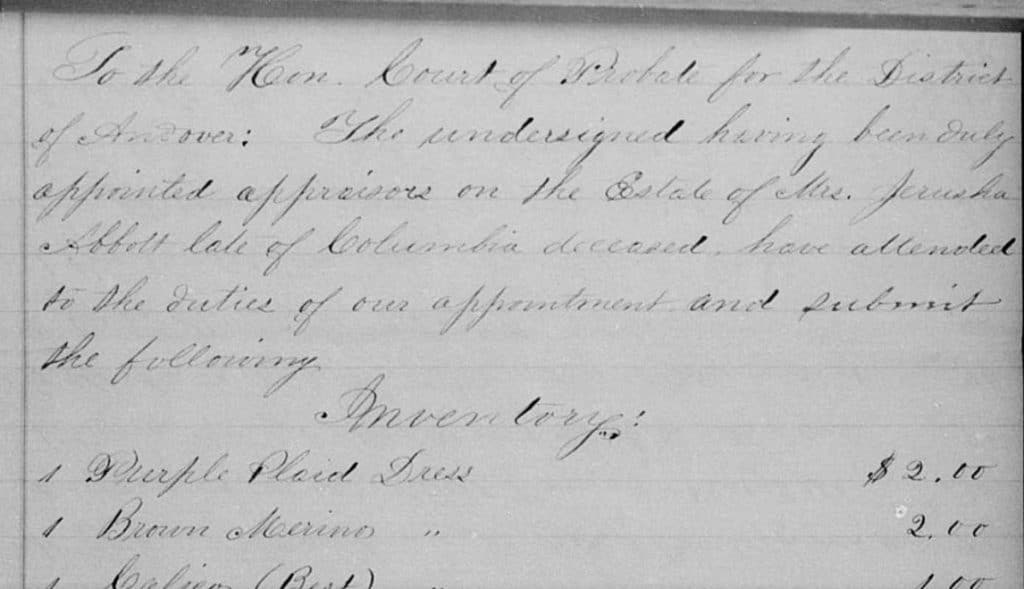 To the Hon. Court of Probate for the District
of Andover: The undersigned having been duly
appointed appraisors on the Estate of Mrs. Jerusha
Abbott late of Columbia deceased, have attended
to the duties of our appointment and submit
the following
Inventory:
1 Purple Plaid Dress $2.00
1 Brown Merino " 2.00
1 Calico (Best) " 1.00